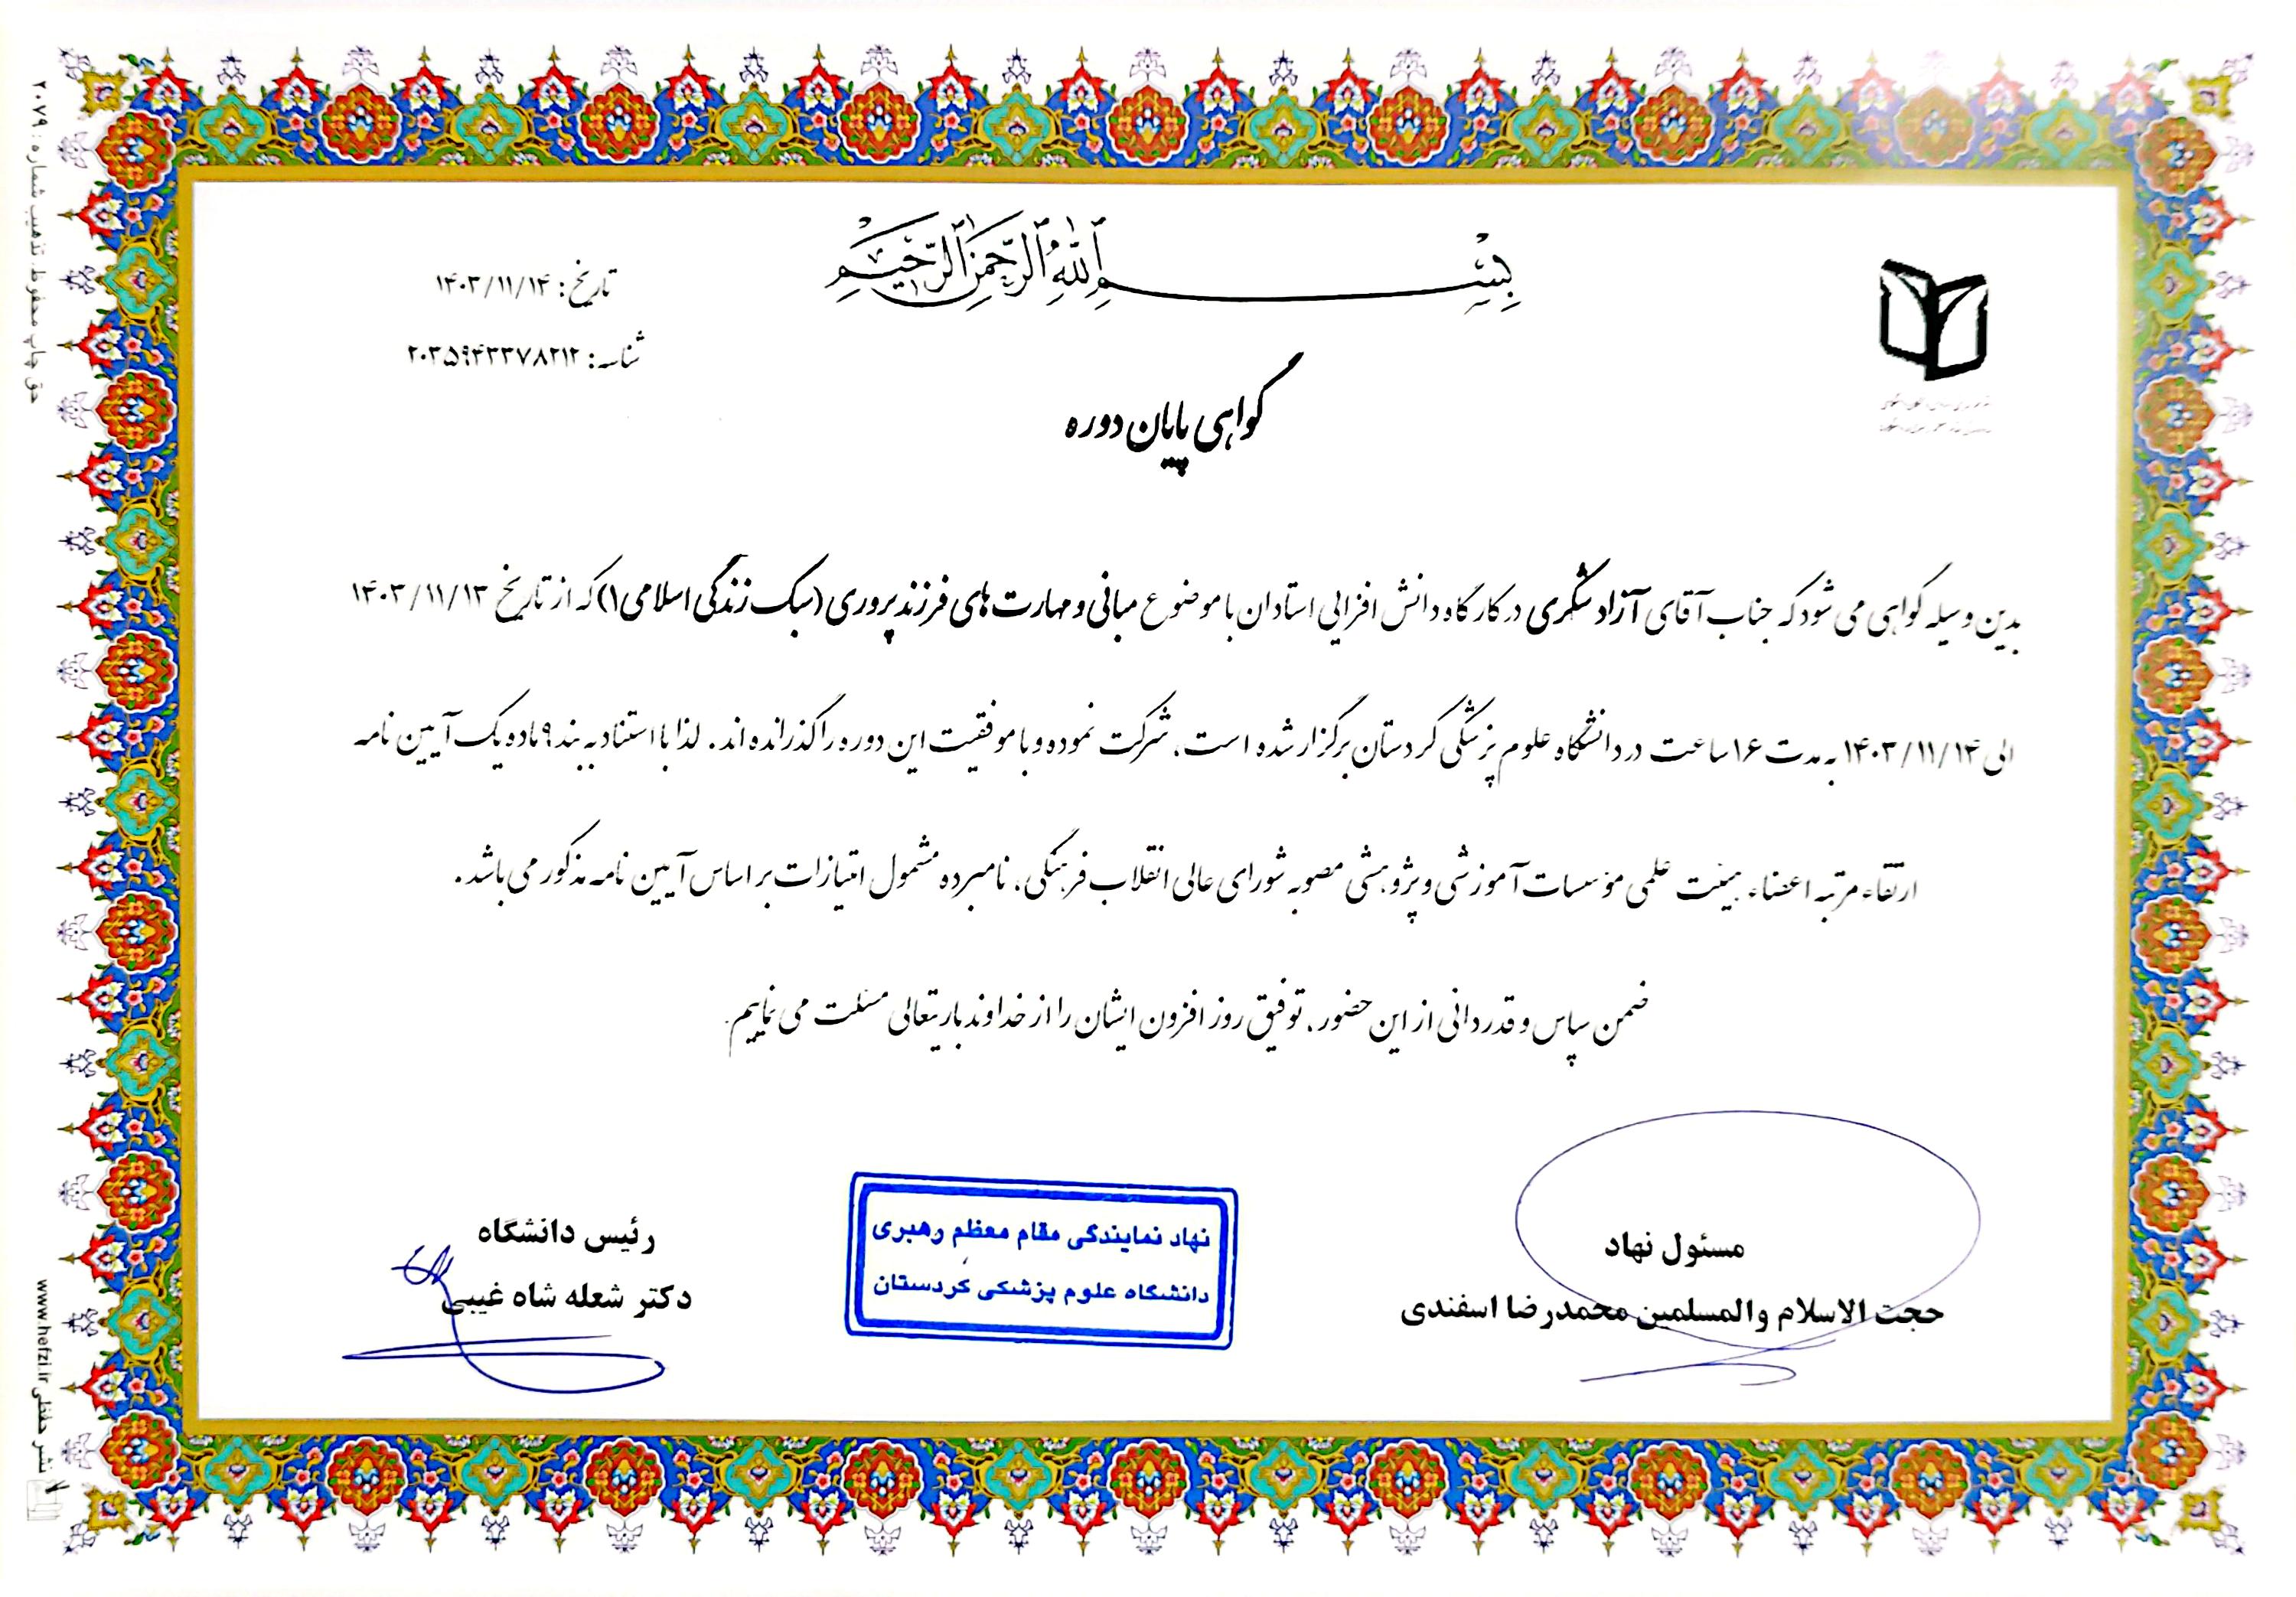 بسم الله الرحمن الرحیم
تاریخ: ۱۴۰۳/۱۱/۱۴
شناسه: ۲۰۳۵۹۴۳۳۷۸۲۱۲
گواهی پایان دوره
بدین وسیله گواهی می شود که جناب آقای آزاد شکری در کارگاه دانش افزایی استادان با موضوع مبانی و مهارت های فرزندپروری (سبک زندگی اسلامی۱) که از تاریخ ۱۴۰۳/۱۱/۱۳
الی ۱۴۰۳/۱۱/۱۴ به مدت ۱۶ ساعت در دانشگاه علوم پزشکی کردستان برگزار شده است، شرکت نموده و با موفقیت این دوره را گذرانده اند. لذا با استناد به بند ۹ ماده یک آیین نامه
ارتقاء مرتبه اعضاء هیئت علمی مؤسسات آموزشی و پژوهشی مصوبه شورای عالی انقلاب فرهنگی، نامبرده مشمول امتیازات بر اساس آیین نامه مذکور می باشد.
ضمن سپاس و قدردانی از این حضور، توفیق روز افزون ایشان را از خداوند باریتعالی مسئلت می نماییم.
مسئول نهاد
حجت الاسلام والمسلمین محمدرضا اسفندی
نهاد نمایندگی مقام معظم رهبری
دانشگاه علوم پزشکی کردستان
رئیس دانشگاه
دکتر شعله شاه غیبی
حق چاپ محفوظ، تذهیب شماره: ۲۰۷۹
نشر حفظی www.hefzi.ir